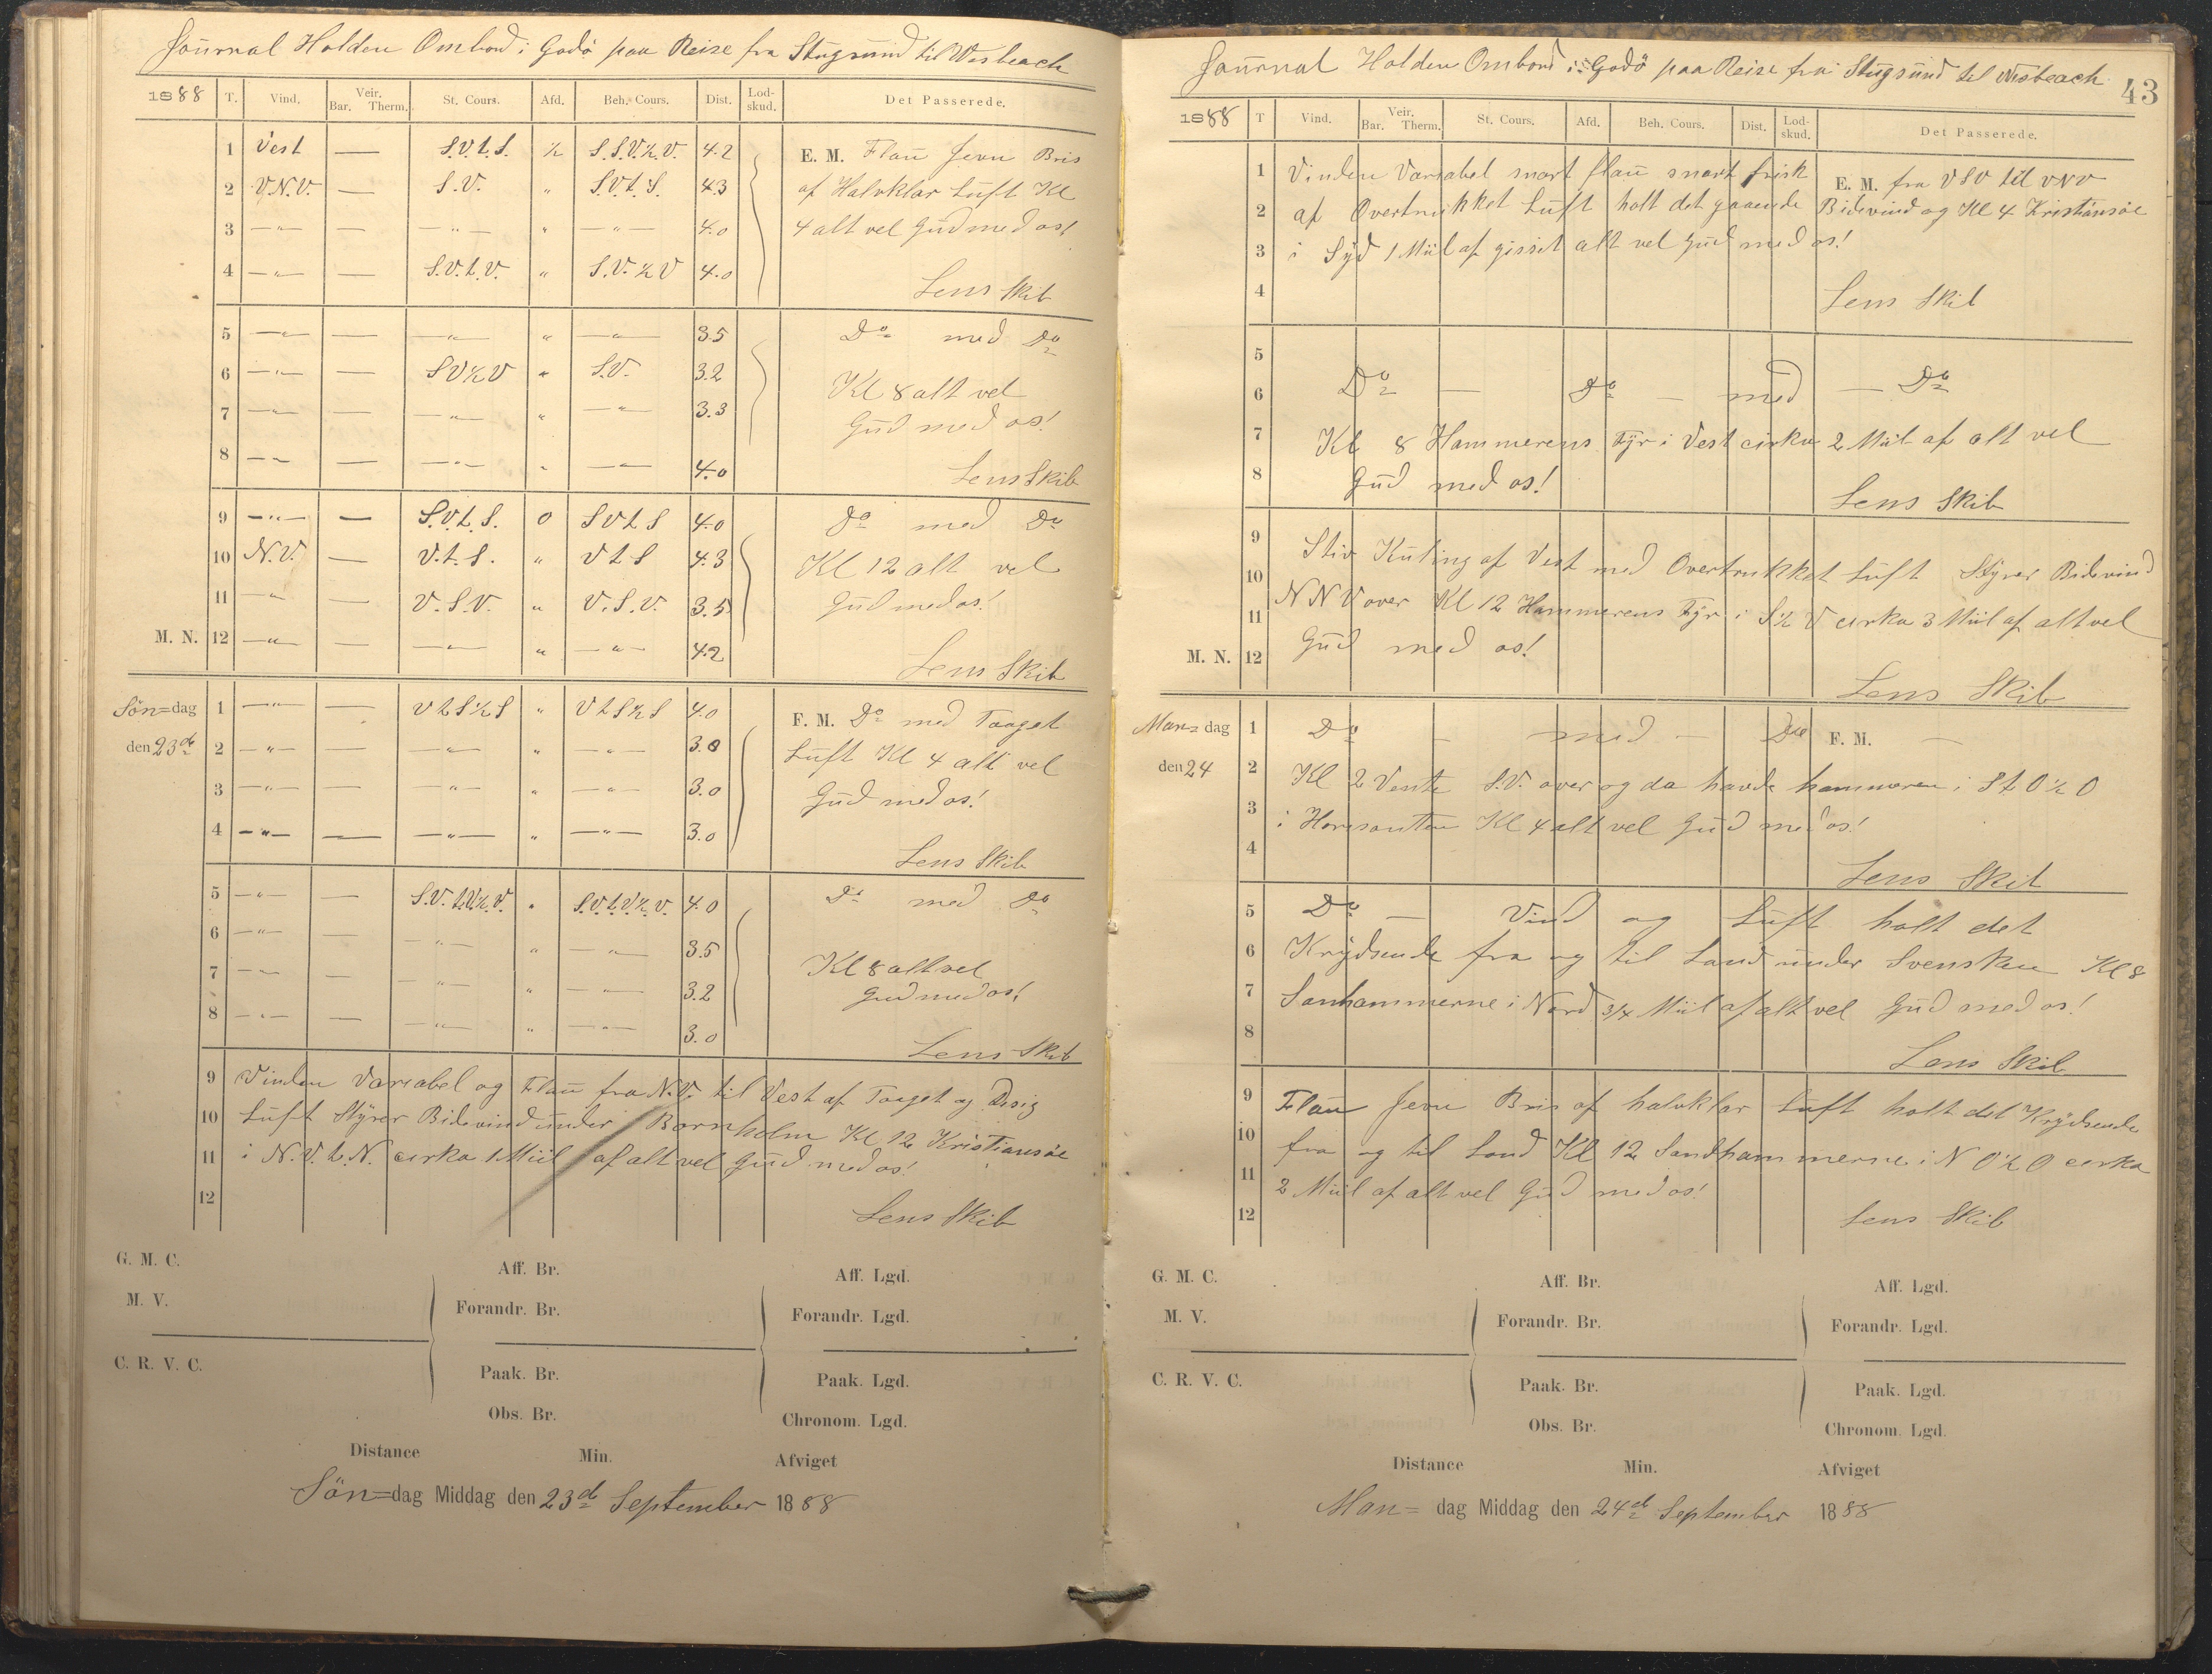 Journal Holden Ombord i Godö paa Reise fra Stugsund til Wisbeach
1888 T. Vind. Veir. Bar. Therm. St. Cours. Afd. Beh. Cours. Dist. Lod-skud. Det Passerede.
1 Vest — S.V.t.S. ½ S.S.V.½.V. 4.2 E. M. Flau Jevn Bris
2 V.N.V. — S.V. " S.V.t.S. 4.3 af Halvklar Luft Kl
3 —"— — —"— " —"— 4.0 4 alt vel Gud med os!
4 —"— — S.V.t.V. " S.V.½V 4.0
Lens Skib
5 —"— — —"— " —"— 3.5 Do med Do
6 —"— — SV½V " S.V. 3.2
Kl 8 alt vel
7 —"— — —"— " —"— 3.3
Gud med os!
8 —"— — —"— " —"— 4.0
Lens Skib
9 —"— — S.V.t.S. 0 SVtS 4.0 Do med Do
10 N.V. — V.t.S. " VtS 4.3 Kl 12 alt vel
11 —"— — V.S.V. " V.S.V. 3.5 Gud med os!
M. N. 12 —"— — —"— " —"— 4.2
Lens Skib
Sön=dag 1 —"— — VtS½S " VtS½S 4.0 F. M. Do med Taaget
den 23de 2 —"— — —"— " —"— 3.8 Luft Kl 4 alt vel
3 —"— — —"— " —"— 3.0 Gud med os!
4 —"— — —"— " —"— 3.0
Lens Skib
5 —"— — S.V.t.V½.V. " S.V.t.V½.V. 4.0 Do med Do
6 —"— — —"— " —"— 3.5
Kl 8 alt vel
7 —"— — —"— " —"— 3.2
Gud med os!
8 —"— — —"— " —"— 3.0
Lens Skib
9 Vinden Variabel og Flau fra N.V. til Vest af Taaget og Disig
10 Luft Styrer Bidevind under Bornholm Kl 12 Kristiansöe
11 i N.V.t.N. cirka 1 Miil af alt vel Gud med os!
12
Lens Skib
G. M. C. Aff. Br. Aff. Lgd.
M. V. Forandr. Br. Forandr. Lgd.
C. R. V. C. Paak. Br. Paak. Lgd.
Obs. Br. Chronom. Lgd.
Distance Min. Afviget
Sön=dag Middag den 23de September 1888
Journal Holden Ombord i Godö paa Reise fra Stugsund til Wisbeach
43
1888 T Vind. Veir. Bar. Therm. St. Cours. Afd. Beh. Cours. Dist. Lod-skud. Det Passerede.
1 Vinden Variabel snart flau snart frisk E. M. fra VSV til VNV
2 af Overtrukket Luft holt det gaaende Bidevind og Kl 4 Kristiansöe
3 i Syd 1 Miil af gisset alt vel Gud med os!
4
Lens Skib
5
6 Do — Do — med — Do
7 Kl 8 Hammerens Fyr i Vest cirka 2 Miil af alt vel
8 Gud med os!
Lens Skib
9 Stiv Kuling af Vest med Overtrukket Luft Styrer Bidevind
10
11 NNV over Kl 12 Hammerens Fyr i S½V cirka 3 Miil af alt vel
M. N. 12 Gud med os!
Lens Skib
Man=dag 1 Do — med — Do F. M. —
den 24 2 Kl 2 Vente S.V. over og da havde hammeren i StO½O
3 i Horisonten Kl 4 alt vel Gud med os!
4
Lens Skib
5 Do — Vind og Luft holt det
6 Krydsende fra og til Land under Svensken Kl 8
7 Sanhammerne i Nord 3/4 Miil af alt vel Gud med os!
8
Lens Skib
9 Flau Jevn Bris af halvklar Luft holt det Krydsende
10 fra og til Land Kl 12 Sandhammerne i NO½O cirka
11 2 Miil af alt vel Gud med os!
12
Lens Skib
G. M. C. Aff. Br. Aff. Lgd.
M. V. Forandr. Br. Forandr. Lgd.
C. R. V. C. Paak. Br. Paak. Lgd.
Obs. Br. Chronom. Lgd.
Distance Min. Afviget
Man=dag Middag den 24de September 1888